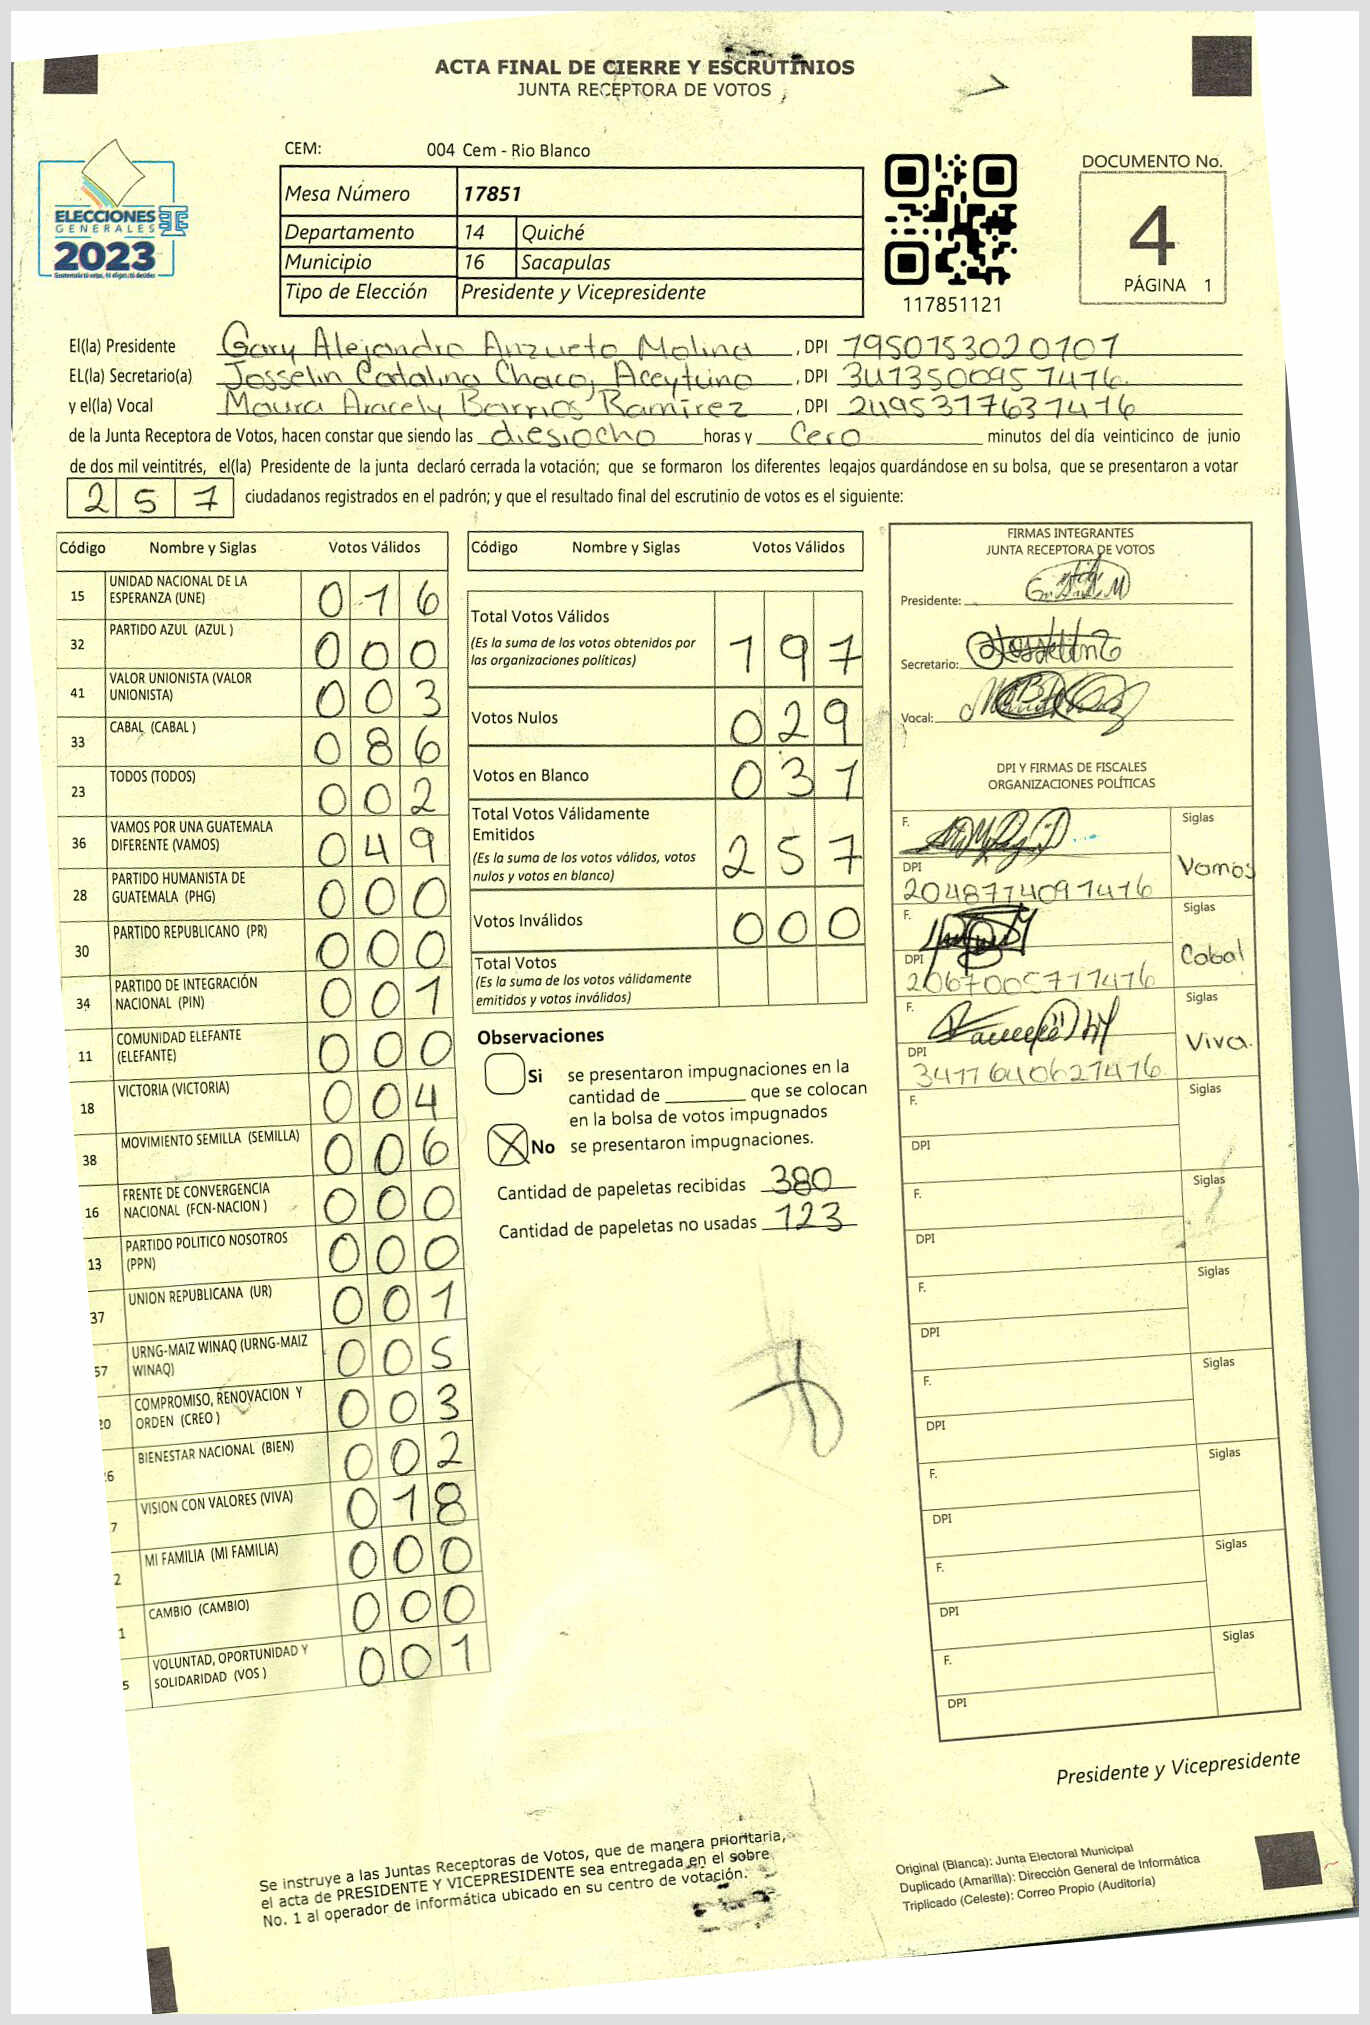 ACTA FINAL DE CIERRE Y ESCRUTINIOS
JUNTA RECEPTORA DE VOTOS
CEM: 004 Cem - Rio Blanco
ELECCIONES
GENERALES
2023
Mesa Número 17851
Departamento 14 Quiché
Municipio 16 Sacapulas
Tipo de Elección Presidente y Vicepresidente
117851121
DOCUMENTO No.
4
PÁGINA 1
El(la) Presidente Gary Alejandro Anzueto Molina, DPI 1950153020101
EL(la) Secretario(a) Josselin Catalina Chaco, Aceytuno, DPI 3413500951416
y el(la) Vocal Maura Aracely Barrios Ramírez, DPI 2495317631416
de la Junta Receptora de Votos, hacen constar que siendo las diesiocho horas y cero minutos del día veinticinco de junio
de dos mil veintitrés, el(la) Presidente de la junta declaró cerrada la votación; que se formaron los diferentes legajos guardándose en su bolsa, que se presentaron a votar
257 ciudadanos registrados en el padrón; y que el resultado final del escrutinio de votos es el siguiente:
Código Nombre y Siglas Votos Válidos
15 UNIDAD NACIONAL DE LA ESPERANZA (UNE) 016
32 PARTIDO AZUL (AZUL ) 000
41 VALOR UNIONISTA (VALOR UNIONISTA) 003
33 CABAL (CABAL ) 086
23 TODOS (TODOS) 002
36 VAMOS POR UNA GUATEMALA DIFERENTE (VAMOS) 049
28 PARTIDO HUMANISTA DE GUATEMALA (PHG) 000
30 PARTIDO REPUBLICANO (PR) 000
34 PARTIDO DE INTEGRACIÓN NACIONAL (PIN) 001
11 COMUNIDAD ELEFANTE (ELEFANTE) 000
18 VICTORIA (VICTORIA) 004
38 MOVIMIENTO SEMILLA (SEMILLA) 006
16 FRENTE DE CONVERGENCIA NACIONAL (FCN-NACION ) 000
13 PARTIDO POLITICO NOSOTROS (PPN) 000
37 UNION REPUBLICANA (UR) 001
57 URNG-MAIZ WINAQ (URNG-MAIZ WINAQ) 005
20 COMPROMISO, RENOVACION Y ORDEN (CREO ) 003
6 BIENESTAR NACIONAL (BIEN) 002
7 VISION CON VALORES (VIVA) 018
2 MI FAMILIA (MI FAMILIA) 000
1 CAMBIO (CAMBIO) 000
5 VOLUNTAD, OPORTUNIDAD Y SOLIDARIDAD (VOS ) 001
Código Nombre y Siglas Votos Válidos
Total Votos Válidos 197
(Es la suma de los votos obtenidos por
las organizaciones políticas)
Votos Nulos 029
Votos en Blanco 031
Total Votos Válidamente
Emitidos 257
(Es la suma de los votos válidos, votos
nulos y votos en blanco)
Votos Inválidos 000
Total Votos
(Es la suma de los votos válidamente
emitidos y votos inválidos)
Observaciones
Si se presentaron impugnaciones en la
cantidad de ________ que se colocan
en la bolsa de votos impugnados
X No se presentaron impugnaciones.
Cantidad de papeletas recibidas 380
Cantidad de papeletas no usadas 123
FIRMAS INTEGRANTES
JUNTA RECEPTORA DE VOTOS
Presidente:
Secretario:
Vocal:
DPI Y FIRMAS DE FISCALES
ORGANIZACIONES POLÍTICAS
F. Siglas
DPI Vamos
2048714091416
F. Siglas
DPI Cabal
2067005771416
F. Siglas
DPI Viva.
3417640621416
F. Siglas
DPI
F. Siglas
DPI
F. Siglas
DPI
F. Siglas
DPI
F. Siglas
DPI
F. Siglas
DPI
F. Siglas
DPI
Presidente y Vicepresidente
Se instruye a las Juntas Receptoras de Votos, que de manera prioritaria,
el acta de PRESIDENTE Y VICEPRESIDENTE sea entregada en el sobre
No. 1 al operador de informática ubicado en su centro de votación.
Original (Blanca): Junta Electoral Municipal
Duplicado (Amarilla): Dirección General de Informática
Triplicado (Celeste): Correo Propio (Auditoría)